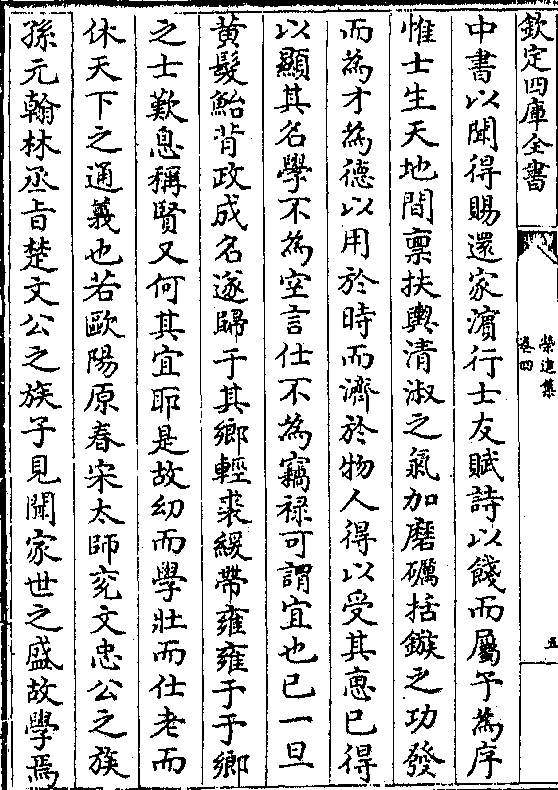 欽定四庫全書
榮進集
卷四
五
中書以聞得賜還家濵行士友賦詩以餞而屬予為序
惟士生天地間禀扶輿清淑之氣加磨礪括鏃之功發
而為才為德以用於時而濟於物人得以受其惠已得
以顯其名學不為空言仕不為竊祿可謂宜也已一旦
黄髮鮐背政成名遂歸于其鄉輕裘緩帶雍雍于于鄉
之士歎息稱賢又何其宜耶是故幼而學壯而仕老而
休天下之通義也若歐陽原春宋太師兖文忠公之族
孫元翰林丞㫖楚文公之族子見聞家世之盛故學焉